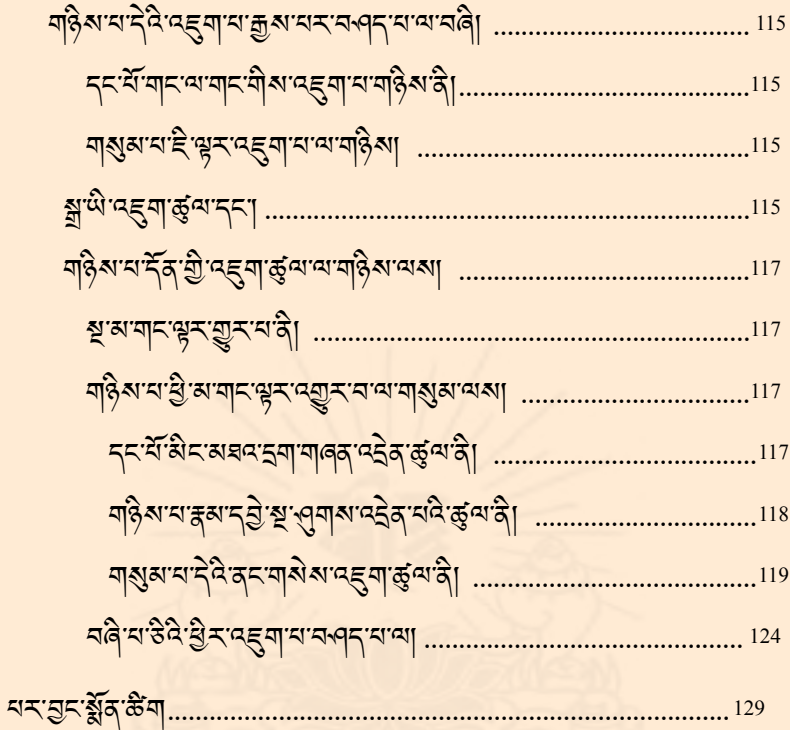 གཉིས་པ་དེའི་འཇུག་པ་རྒྱས་པར་བཤད་པ་ལ་བཞི། .................................. 115
དང་པོ་གང་ལ་གང་གིས་འཇུག་པ་གཉིས་ནི།.......................................115
གསུམ་པ་ཇི་ལྟར་འཇུག་པ་ལ་གཉིས། .............................................115
སྒྲ་ཡི་འཇུག་ཚུལ་དང་། .................................................................115
གཉིས་པ་དོན་གྱི་འཇུག་ཚུལ་ལ་གཉིས་ལས། .......................................117
སྔ་མ་གང་ལྟར་གྱུར་པ་ནི། ...........................................................117
གཉིས་པ་ཕྱི་མ་གང་ལྟར་འགྱུར་བ་ལ་གསུམ་ལས། ...............................117
དང་པོ་མིང་མཐའ་དྲག་གཞན་འདྲེན་ཚུལ་ནི། ...................................117
གཉིས་པ་རྣམ་དབྱེ་སྔ་ཤུགས་འདྲེན་པའི་ཚུལ་ནི། ..............................118
གསུམ་པ་དེའི་ནང་གསེས་འཇུག་ཚུལ་ནི། ......................................119
བཞི་པ་ཅིའི་ཕྱིར་འཇུག་པ་བཤད་པ་ལ། ........................................... 124
པར་བྱང་སྨོན་ཚིག ........................................................................... 129